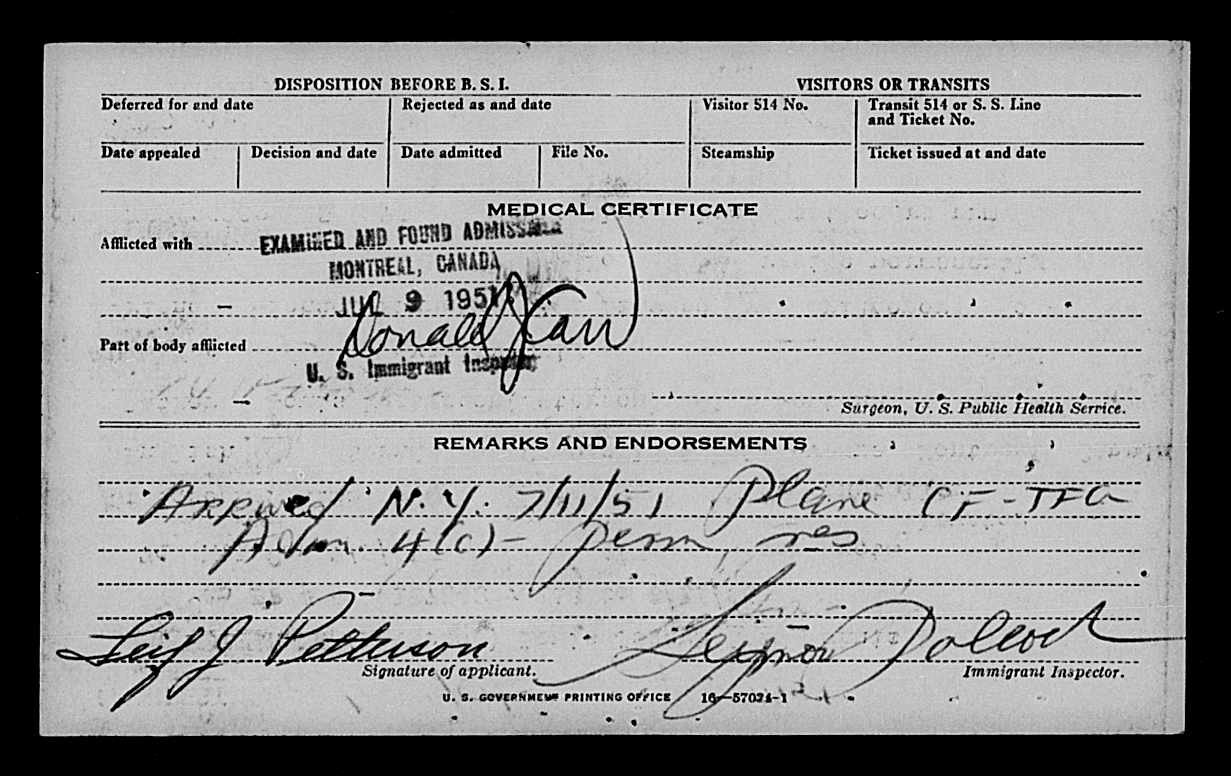 DISPOSITION BEFORE B. S. I.
VISITORS OR TRANSITS
Deferred for and date
Rejected as and date
Visitor 514 No.
Transit 514 or S. S. Line
and Ticket No.
Date appealed
Decision and date
Date admitted
File No.
Steamship
Ticket issued at and date
MEDICAL CERTIFICATE
Afflicted with
EXAMINED AND FOUND
MONTREAL, CANADA
JUL 9 1951
Donald J Carr
Part of body afflicted
U. S. Immigrant Inspector
Surgeon, U. S. Public Health Service.
REMARKS AND ENDORSEMENTS
Arrived N.Y. 7/11/51 Plane CF-TFG
Adm. 4(c)- perm res
Leif J Petterson
Signature of applicant.
Immigrant Inspector.
U. S. GOVERNMENT PRINTING OFFICE 16—57024-1